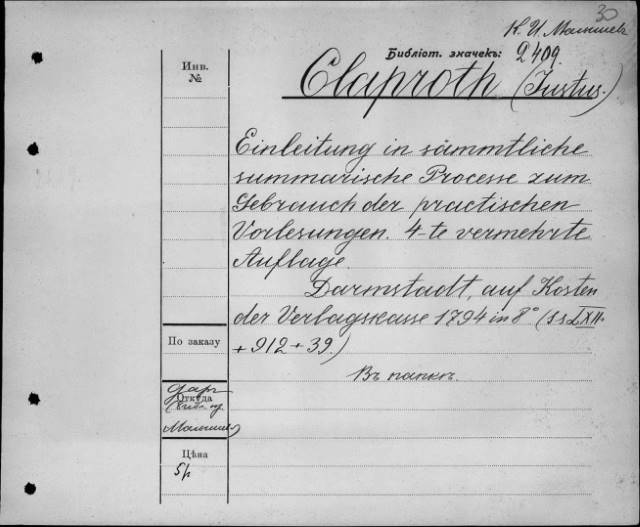 30
К. И. Малышев
Библіот. значекъ: 2409.
Claproth (Justus.)
Инв.
№
Einleitung in sämmtliche
summarische Processe zum
Gebrauch der practischen
Vorlesungen. 4-te vermehrte
Auflage.
Darmstadt, auf Kosten
der Verlagskasse 1794 in 8° (ss LXII.
+ 912 + 39.)
По заказу
Въ папкѣ.
Даръ
Откуда
Малышев
Цѣна
5 р